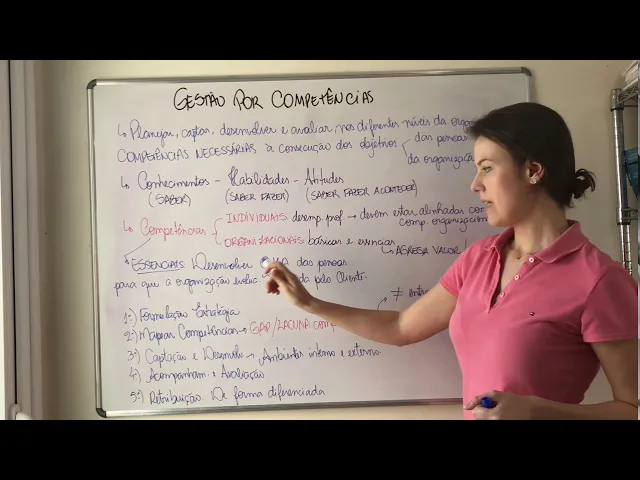 GESTÃO POR COMPETÊNCIAS
↳ Planejar, captar, desenvolver e avaliar, nos diferentes níveis da
COMPETÊNCIAS NECESSÁRIAS à consecução dos objetivos das pessoas
da organização
↳ Conhecimentos - Habilidades - Atitudes
(SABER) (SABER FAZER) (SABER FAZER ACONTECER)
↳ Competências { INDIVIDUAIS: desemp. prof. → devem estar alinhadas com
comp. organizacion
ORGANIZACIONAIS: básicas e essenciais
↳ AGREGA VALOR!
* ESSENCIAIS: Desenvolver das pessoas
para que a organização pelo Cliente.
≠ entre
1º) Formulação Estratégia
2º) Mapear Competências → GAP/LACUNA COMP
3º) Captação e Desenvolv. → Ambientes interno e externo.
4º) Acompanham. e Avaliação
5º) Retribuição. De forma diferenciada